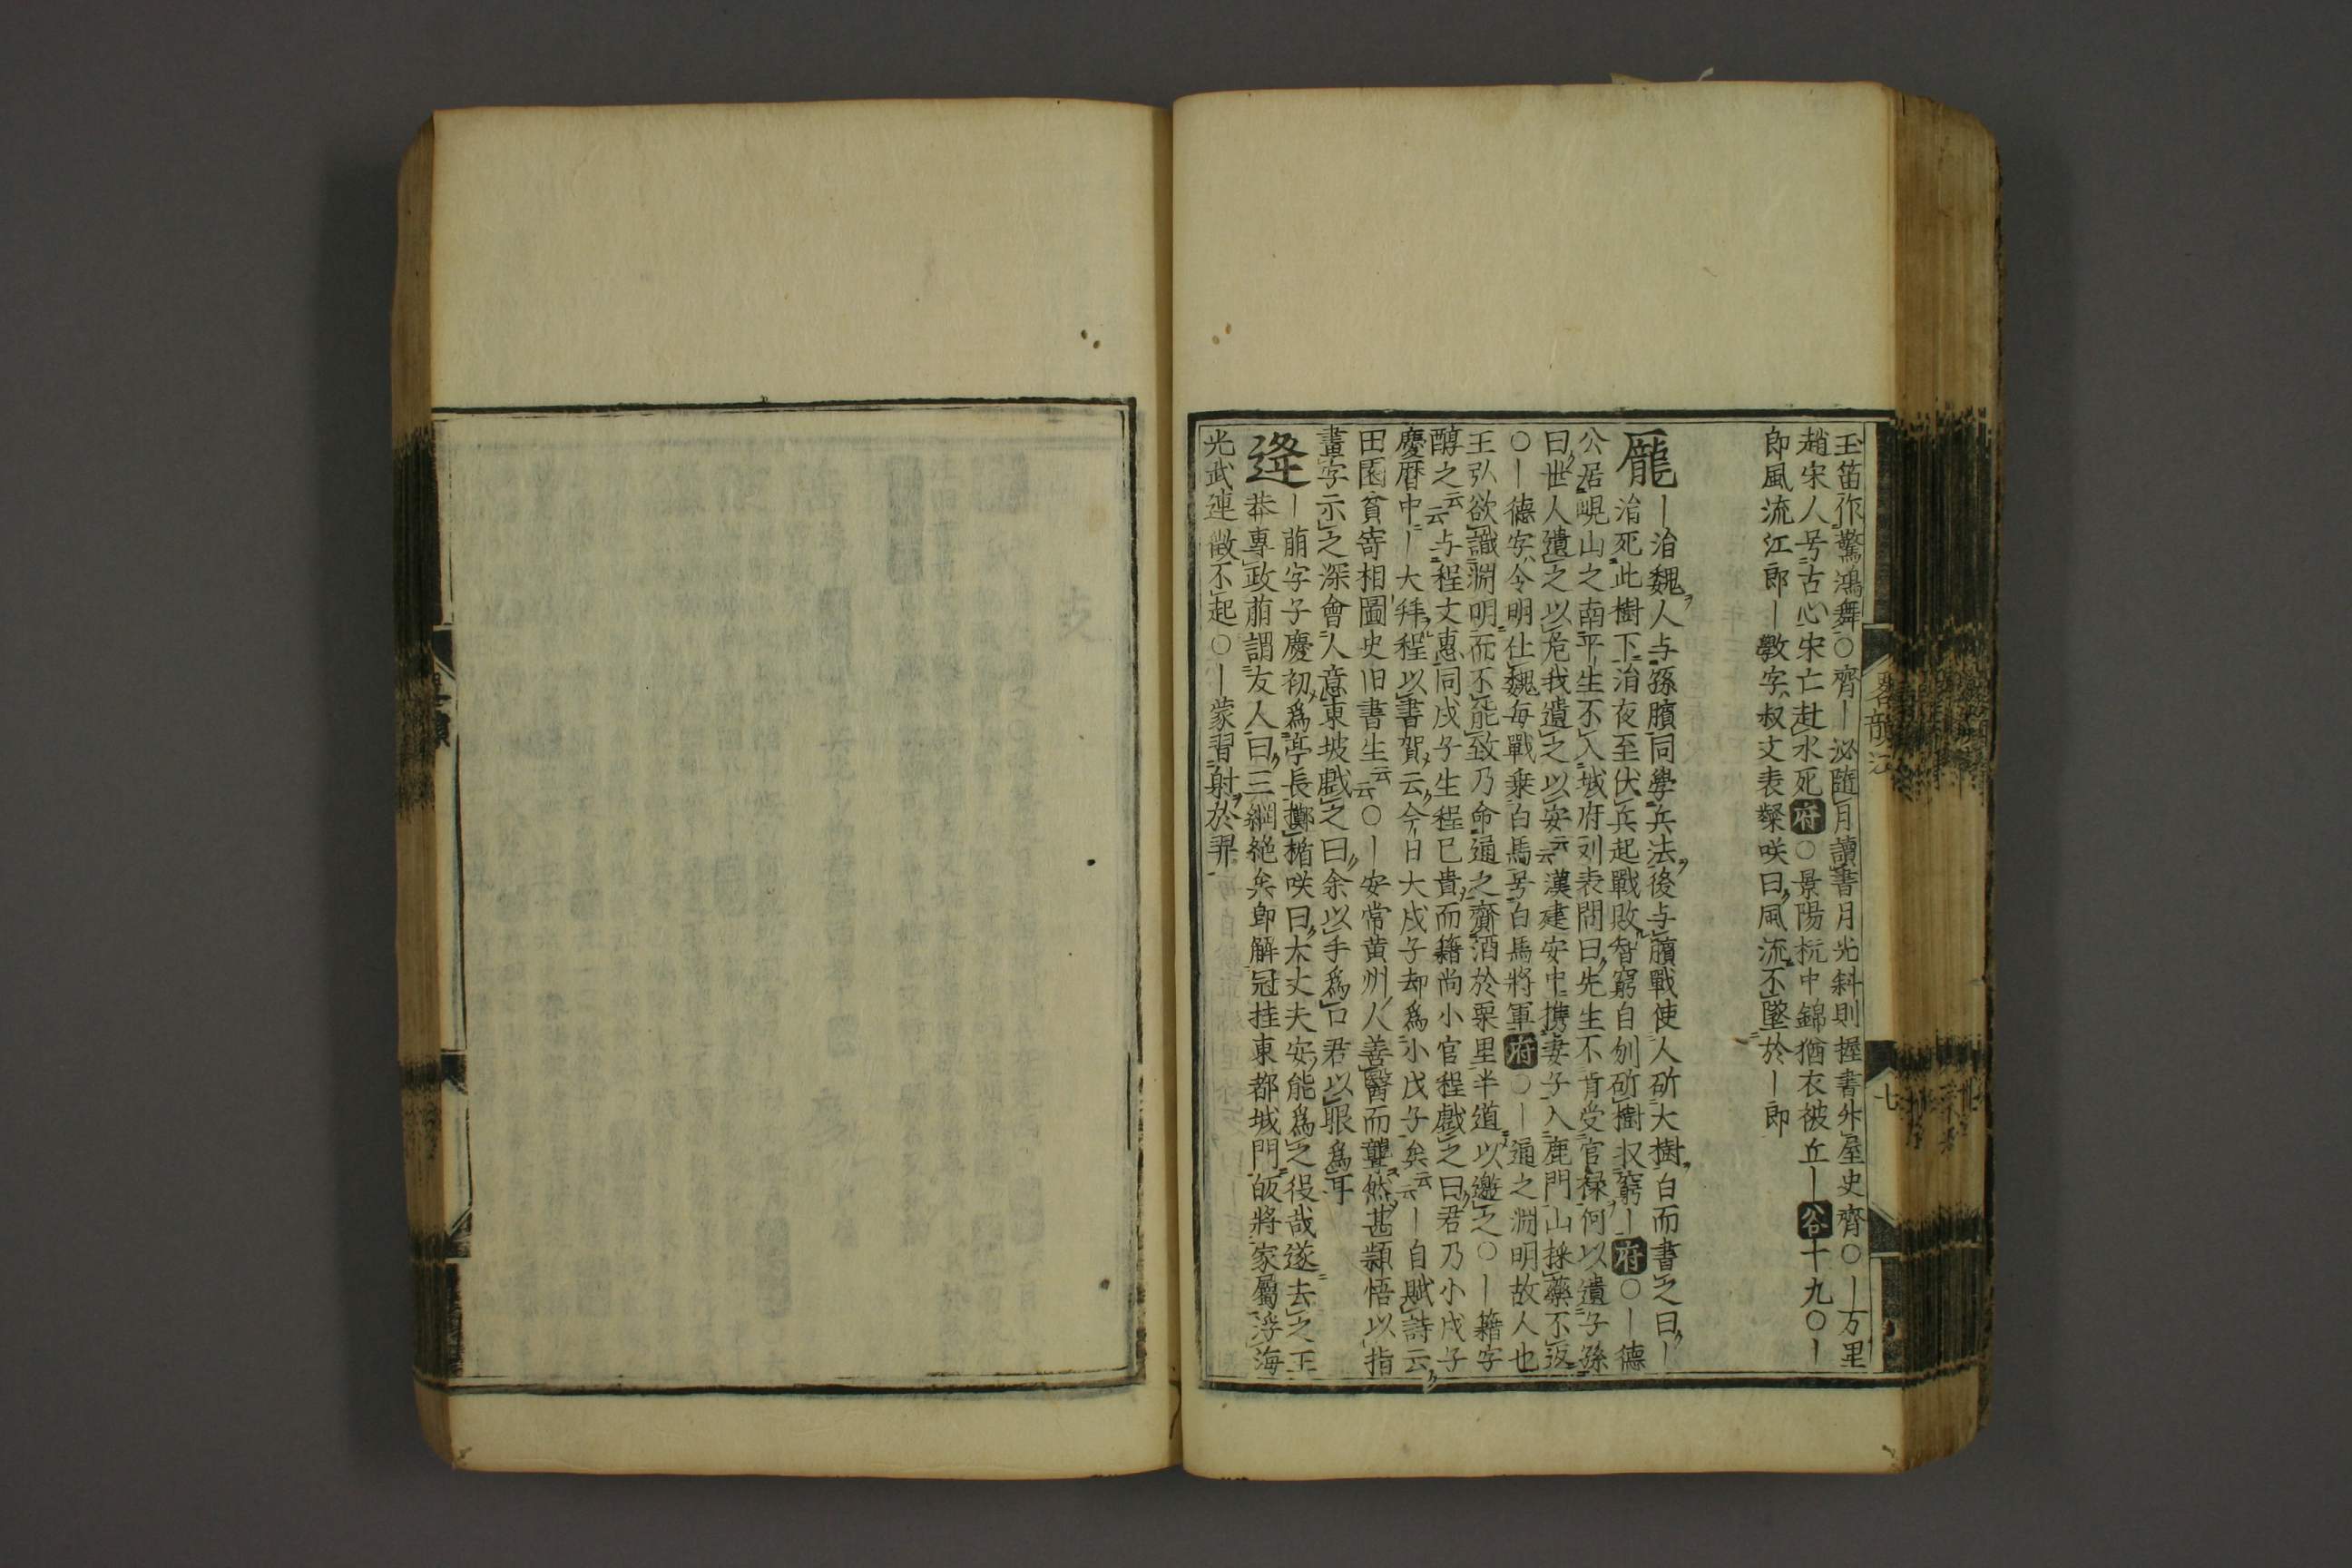 玉笛作驚鴻舞○齊｜泌隨月讀書月光斜則握書升屋史齊○｜万里
趙宋人号古心宋亡赴水死府○景陽杬中錦猶衣被丘｜谷十九○｜
即風流江郎｜斅字叔文表粲咲曰風流不墜於｜郎
龐
｜治魏人与孫臏同學兵法後与臏戰使人斫大樹白而書之曰｜
治死此樹下治夜至伏兵起戰敗智窮自刎斫樹収窮｜府○｜德
公居峴山之南平生不入城府刘表問曰先生不肯受官禄何以遺子孫
曰世人遺之以危我遺之以安云云漢建安中携妻子入鹿門山採藥不返
○｜德字令明仕魏毎戰乗白馬号白馬將軍府○｜通之淵明故人也
王弘欲識淵明而不能致乃命通之齎酒於栗里半道以邀之○｜籍字
醇之云云与程文惠同戊子生程已貴而籍尚小官程戲之曰君乃小戊子
慶暦中｜大拜程以書賀云今日大戊子却爲小戊子矣云云｜自賦詩云
田園貧寄相圖史旧書生云云○｜安常黄州人善醫而聾然甚穎悟以指
畫字示之深會人意東坡戲之曰余以手爲口君以眼爲耳
逄
｜萠字子慶初爲亭長擲楯咲曰大丈夫安能爲之役哉遂去之王
莽專政萠謂友人曰三綱絶矣即解冠挂東都城門皈將家屬浮海
光武連徴不起○｜蒙習射於羿
略韻江
七